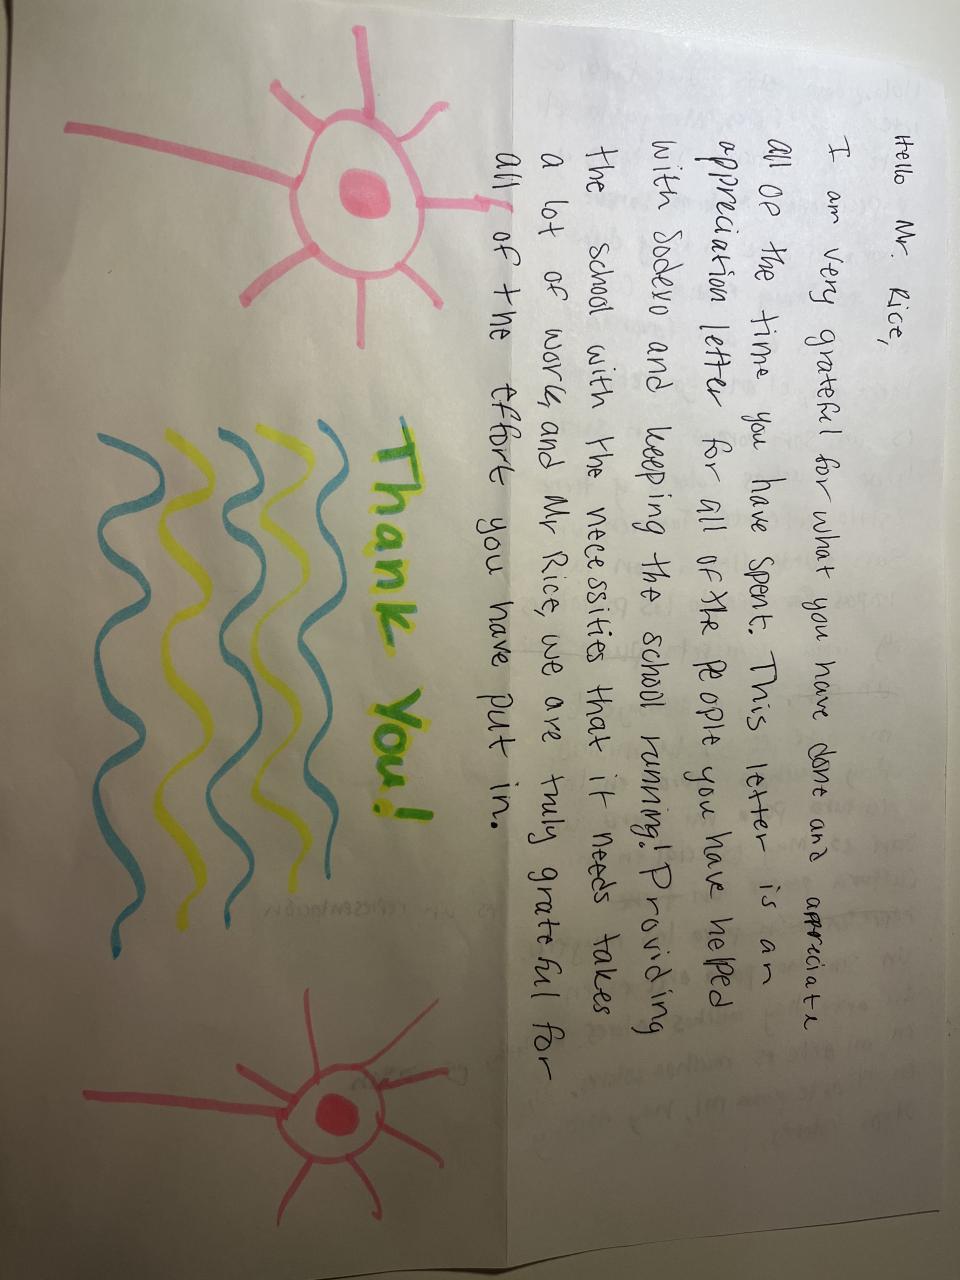 Hello Mr. Rice,
I am very grateful for what you have done and appreciate
all of the time you have spent. This letter is an
appreciation letter for all of the people you have helped
with Sodexo and keeping the school running! Providing
the school with the necessities that it needs takes
a lot of work, and Mr Rice, we are truly grateful for
all of the effort you have put in.
Thank You!